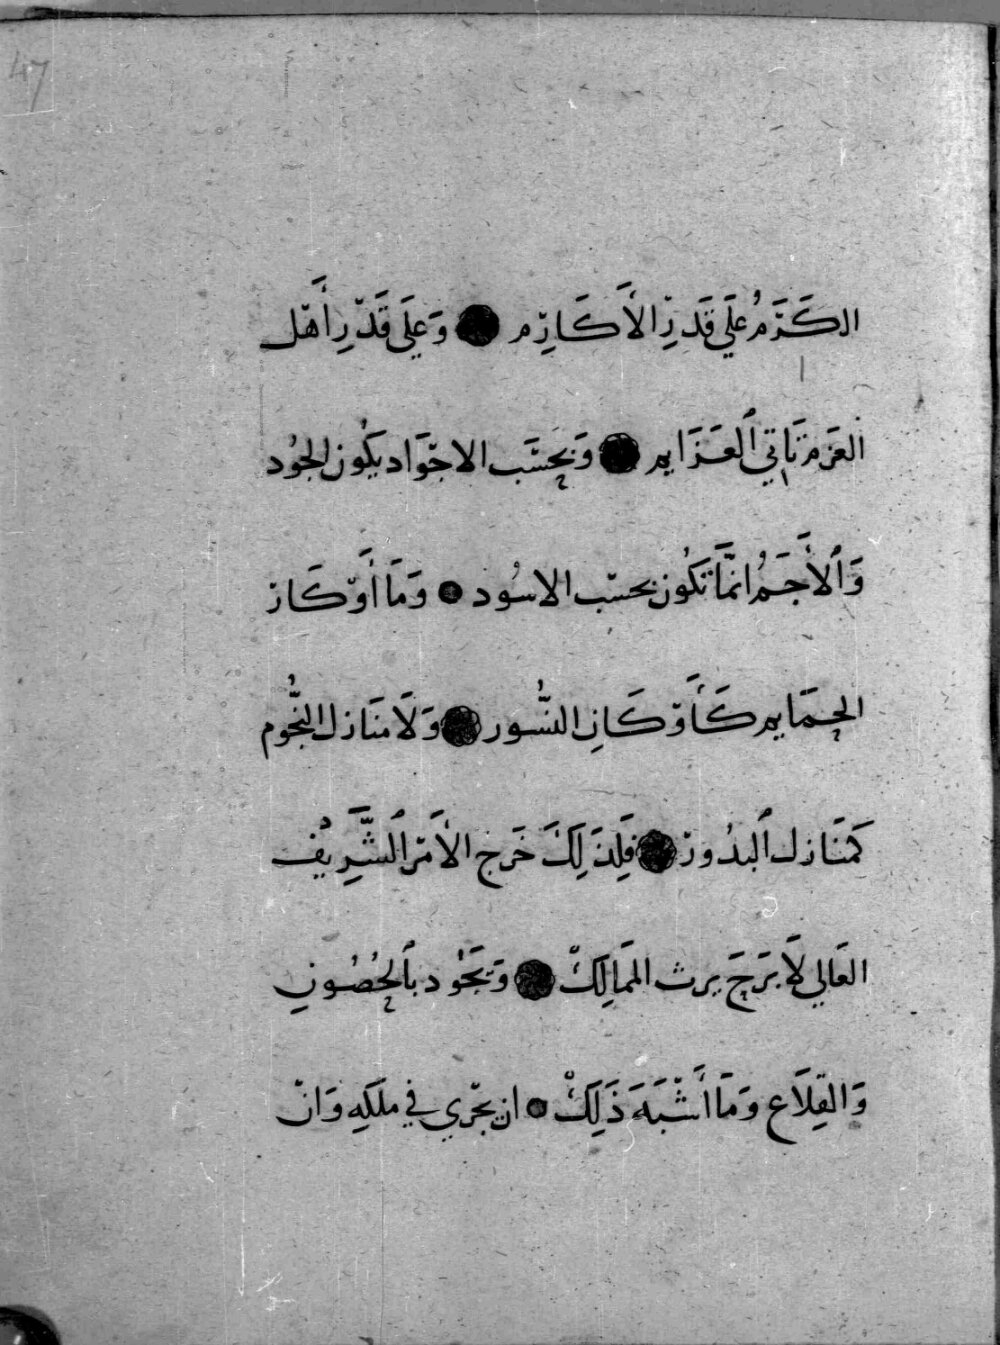 47
الكَرَمُ عَلَي قَدَرِ الأَكَارِم ● وَعَلَى قَدْرِ أَهْل
العَزم تَاتي ٱلعَزَايم ● وَبحَسَب الاجْوَاد يَكُون الجُود
وَٱلأَجَمُ انَّمَا تَكُون بحسَب الاسُود ● وَمَا أَوْكَار
الحِمَايم كَأَوْكَارِ النُّسُور ● وَلَا مَنَازل النُّجُوم
كَمَنَازل ٱلبدُور ● فَلِذَلِكَ خَرَج الأَمْر ٱلشَّرِيْف
العَالِي لَا بَرَحَ يرث المَمَالِكْ ● وَيَجُود بٱلحُصُونِ
وَالقِلَاع وَمَا أَشْبَهَ ذَلِكْ ● ان يجْري في ملكَهِ وَانْ